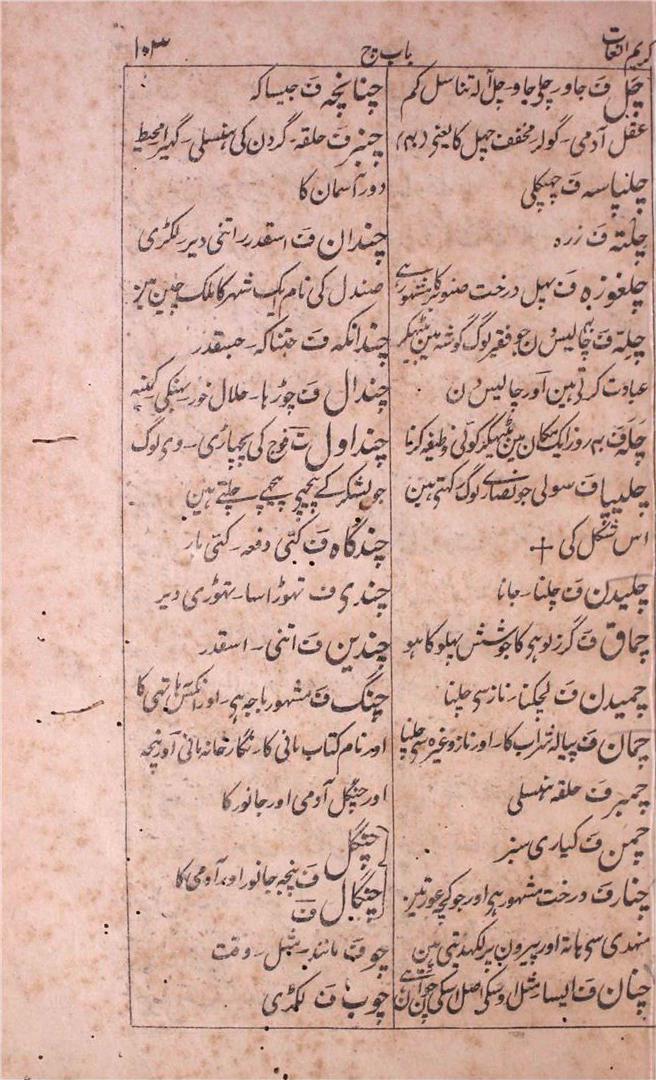 کریم اللغات
باب چ
۱۰۳
چل ف جاو۔ چلی جاو۔ چل آلہ تناسل کم
عقل آدمی۔ گولر مخفف چہل کا یعنی (۴۰)
چلپاسہ ف چھپکلی
چلتہ ف زرہ
چلغوزہ ف پہل درخت صنوبر کا مشہور ہے
چلہ ف چالیس دن جو فقیر لوگ گوشہ مین بیٹھکر
عبادت کرتی ہین اور چالیس دن
چلہ ف بہ روز ایک مکان مین بیٹھکر کوئی وظیفہ کرنا
چلیپا ف سولی جو نصاری لوگ کہتی ہین
اس شکل کی +
چلیدن ف چلنا۔ جانا
چماق ف گرز لوہی کا جو شش پہلو کا ہو
چمیدن ف لچکنا۔ ناز سی چلنا
چمان ف پیالہ شراب کا۔ اور ناز وغیرہ سی چلنا
چمبر ف حلقہ ہنسلی
چمن ف کیاری سبز
چنار ف درخت مشہور ہی اور جو کچھ عورتین
منہدی سی ہاتہ اور پیرون پر لکہدیتی ہین
چنان ف ایسا مثل اوسکی اصل اسکی چون آن ہے
چنانچہ ف جیسا کہ
چنبر ف حلقہ۔ گردن کی ہنسلی۔ گہیرا محیط
دور آسمان کا
چندان ف اسقدر۔ اتنی دیر۔ لکڑی
صندل کی نام ایک شہر کا ملک چین مین
چندانکہ ف جتنا کہ۔ جسقدر
چندال ف چوڑہا۔ حلال خور۔ بہنگی کمینہ
چنداول ت فوج کی پچہاڑی۔ وی لوگ
جو لشکر کے پیچہے پیچہے چلتے ہین
چندگاہ ف کتنی دفعہ۔ کتنی بار
چندی ف تہوڑا سا۔ تہوڑی دیر
چندین ف اتنی۔ اسقدر
چنگ ف مشہور باجہ ہی۔ اور انکس ہاتہی کا
اور نام کتاب مانی کا۔ نگارخانہ مانی اور پنجہ
اور چنگل آدمی اور جانور کا
چنگل
ف پنجہ جانور اور آدمی کا
چنگال ف
چو ف مانند۔ مثل۔ وقت
چوب ف لکڑی